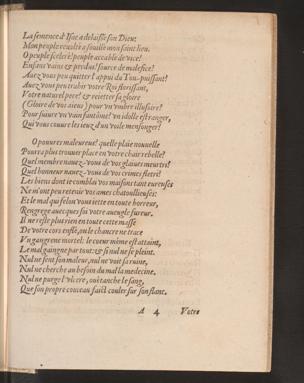 La semence d'Isac a delaissé son Dieu:
Mon peuple revolté a souillé mon saint lieu.
O peuple sceleré! peuple accablé de vice!
Enfans vains & perdus! source de malefice!
Avez vous peu quitter l'appui du Tou-puissant?
Avez vous peu trahir votre Roi florissant,
Votre naturel pere? & reietter sa gloire
(Gloire de vos aieus) pour un umbre illusoire?
Pour suivre un vain fantôme? un idolle estranger,
Qui vous couvre les ieux d'un voile mensonger?
O pouvres maleureus! quelle plaie nouvelle
Pourra plus trouver place en votre chair rebelle?
Quel membre navrez-vous de vos glaives meurtris?
Quel honneur navrez-vous de vos crimes fletri?
Les biens dont ie comblai vos maisons tant eureuses
Ne m'ont peu retenir vos ames chatouilleuses:
Et le mal qui selon vous iette en toute horreur,
Rengrege avecques soi votre aveugle fureur.
Il ne reste plus rien en toute cette masse
De votre cors enflé, ou le chancre ne trace
Un gangrene mortel: le coeur même est attaint,
Le mal gaingne par tout: & si nul ne se pleint.
Nul ne sent son maleur, nul ne voit sa ruine,
Nul ne cherche au besoin du mal la medecine.
Nul ne purge l'ulcere, ou étanche le sang,
Que son propre couteau fait couler sur son flanc.
A 4 Votre